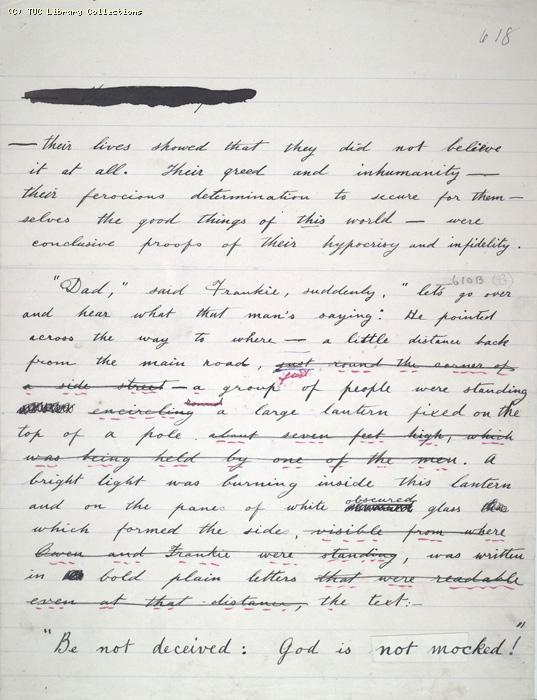 (C) TUC Library Collections
618
— their lives showed that they did not believe
it at all. Their greed and inhumanity —
their ferocious determination to secure for them-
selves the good things of this world — were
conclusive proofs of their hypocrisy and infidelity.
610B
"Dad," said Frankie, suddenly, "lets go over
and hear what that man's saying." He pointed
across the way to where — a little distance back
from the main road, just round the corner of
a side street — a group of people were standing
encircling round a large lantern fixed on the
top of a pole about seven feet high, which
was being held by one of the men. A
bright light was burning inside this lantern
and on the panes of white obscured glass
which formed the sides, visible from where
Owen and Frankie were standing, was written
in bold plain letters that were readable
even at that distance, the text:-
"Be not deceived: God is not mocked!"